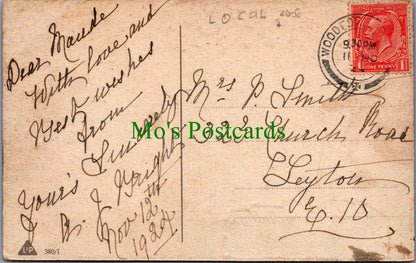 LOCAL
WOODFORD
9.30 PM
11
ONE PENNY
Dear Maude
With love and
Best wishes
from
Yours Sincerely
J Wright
Nov 12th
1924
Mrs P. Smith
322 Church Road
Leyton
E.10
Mo's Postcards
LP
380/1